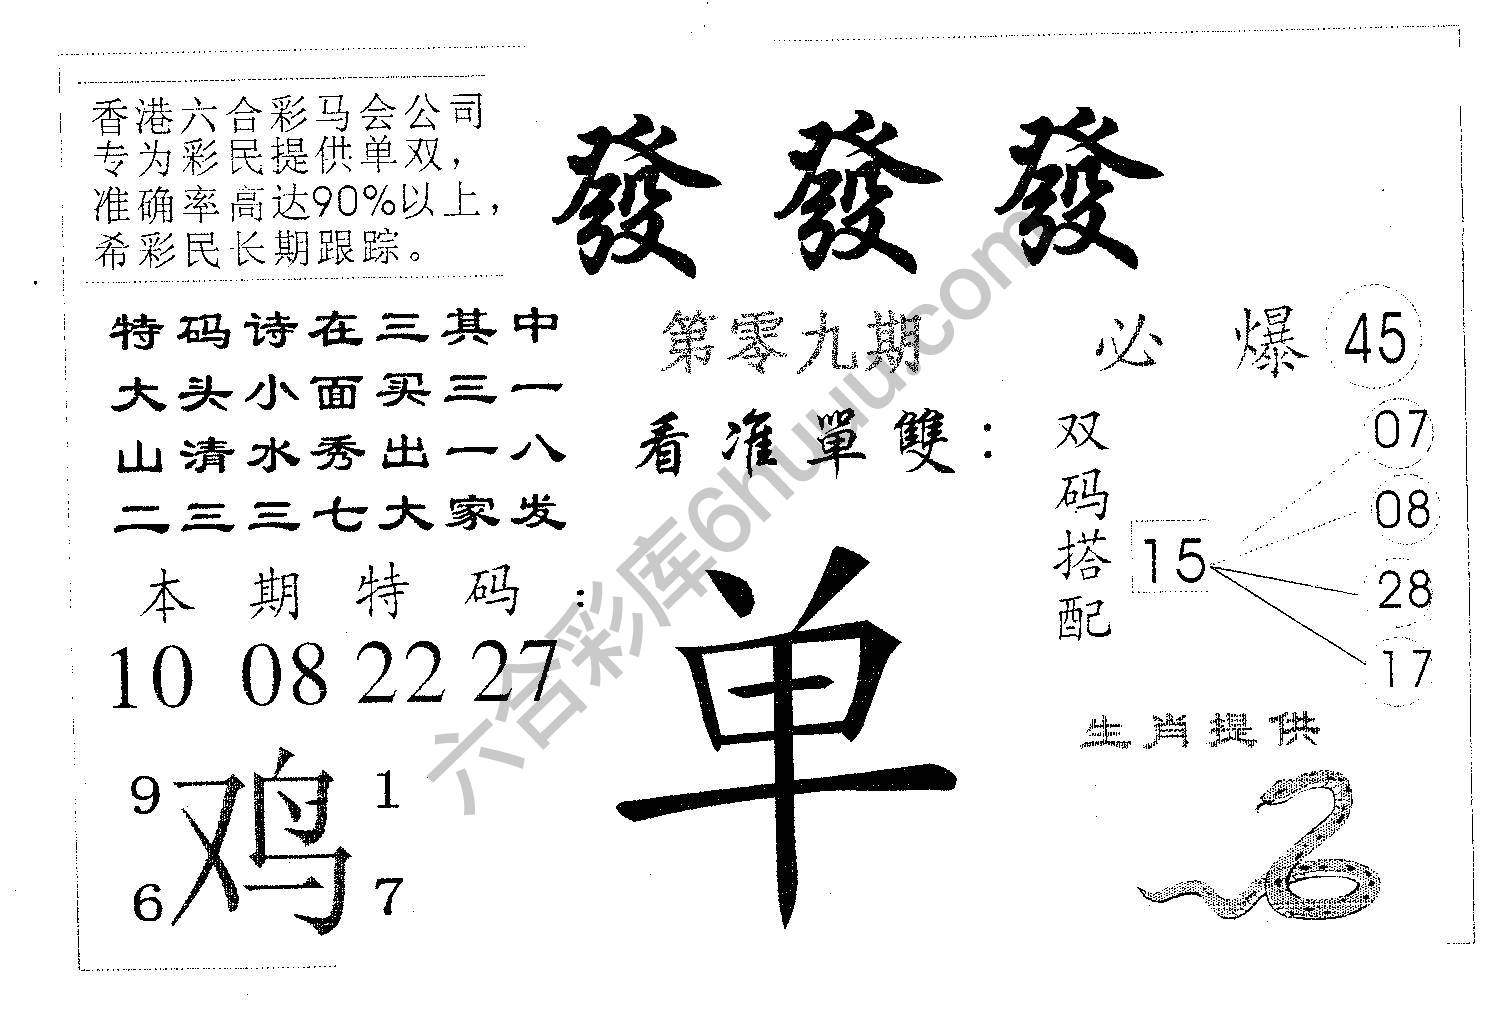 香港六合彩马会公司
专为彩民提供单双，
准确率高达90%以上，
希彩民长期跟踪。
發 發 發
特码诗在三其中
大头小面买三一
山清水秀出一八
二三三七大家发
第零九期
必 爆 45
看准單雙：
单
双码搭配
15
07
08
28
17
本期特码：
10 08 22 27
9 1
鸡
6 7
生肖提供
六合彩库6huuu.com